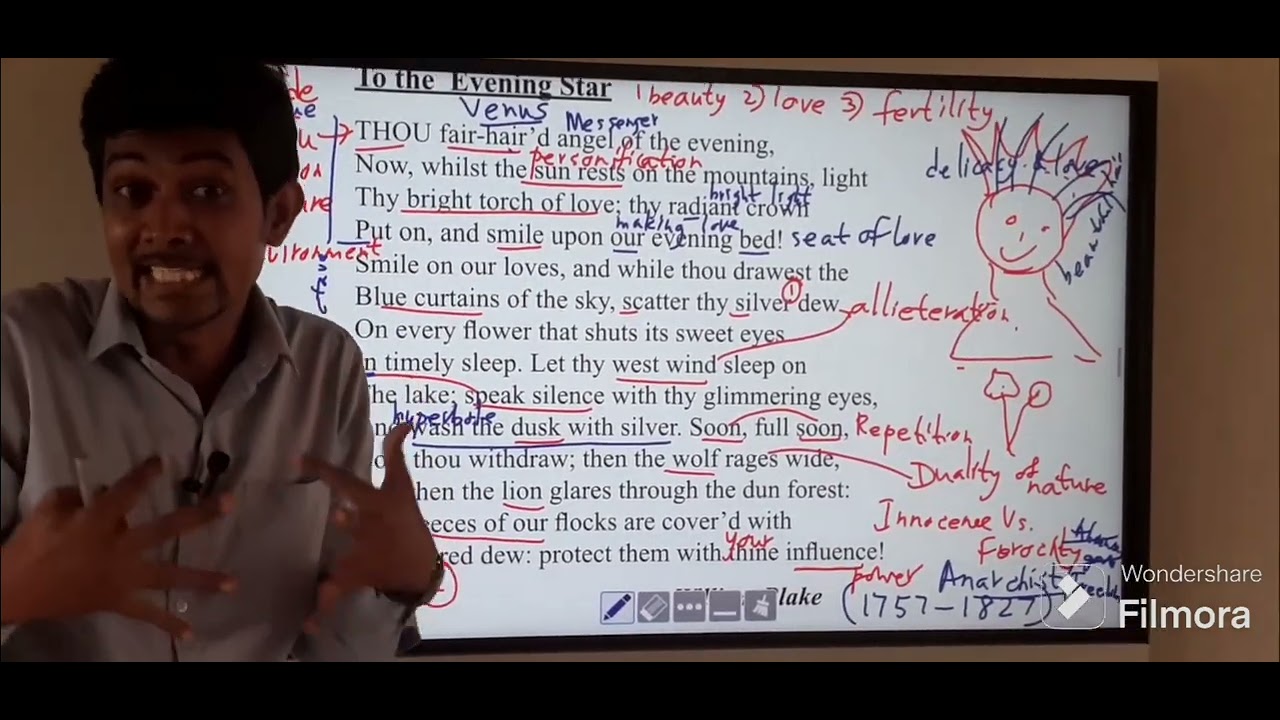 To the Evening Star 1 beauty 2) love 3) fertility
Venus Messenger
THOU fair-hair'd angel of the evening,
personification
delicacy & love
Now, whilst the sun rests on the mountains, light
bright light
Thy bright torch of love; thy radiant crown
making love
Put on, and smile upon our evening bed! seat of love
vironment
Smile on our loves, and while thou drawest the
Blue curtains of the sky, scatter thy silver dew alliteration.
1
On every flower that shuts its sweet eyes
n timely sleep. Let thy west wind sleep on
he lake; speak silence with thy glimmering eyes,
hyperbole
wash the dusk with silver. Soon, full soon, Repetition
thou withdraw; then the wolf rages wide,
Duality of nature
hen the lion glares through the dun forest:
eeces of our flocks are cover'd with
Innocence Vs.
Ferocity
your
red dew: protect them with thine influence!
power Anarchist
Blake (1757-1827)
Wondershare
Filmora